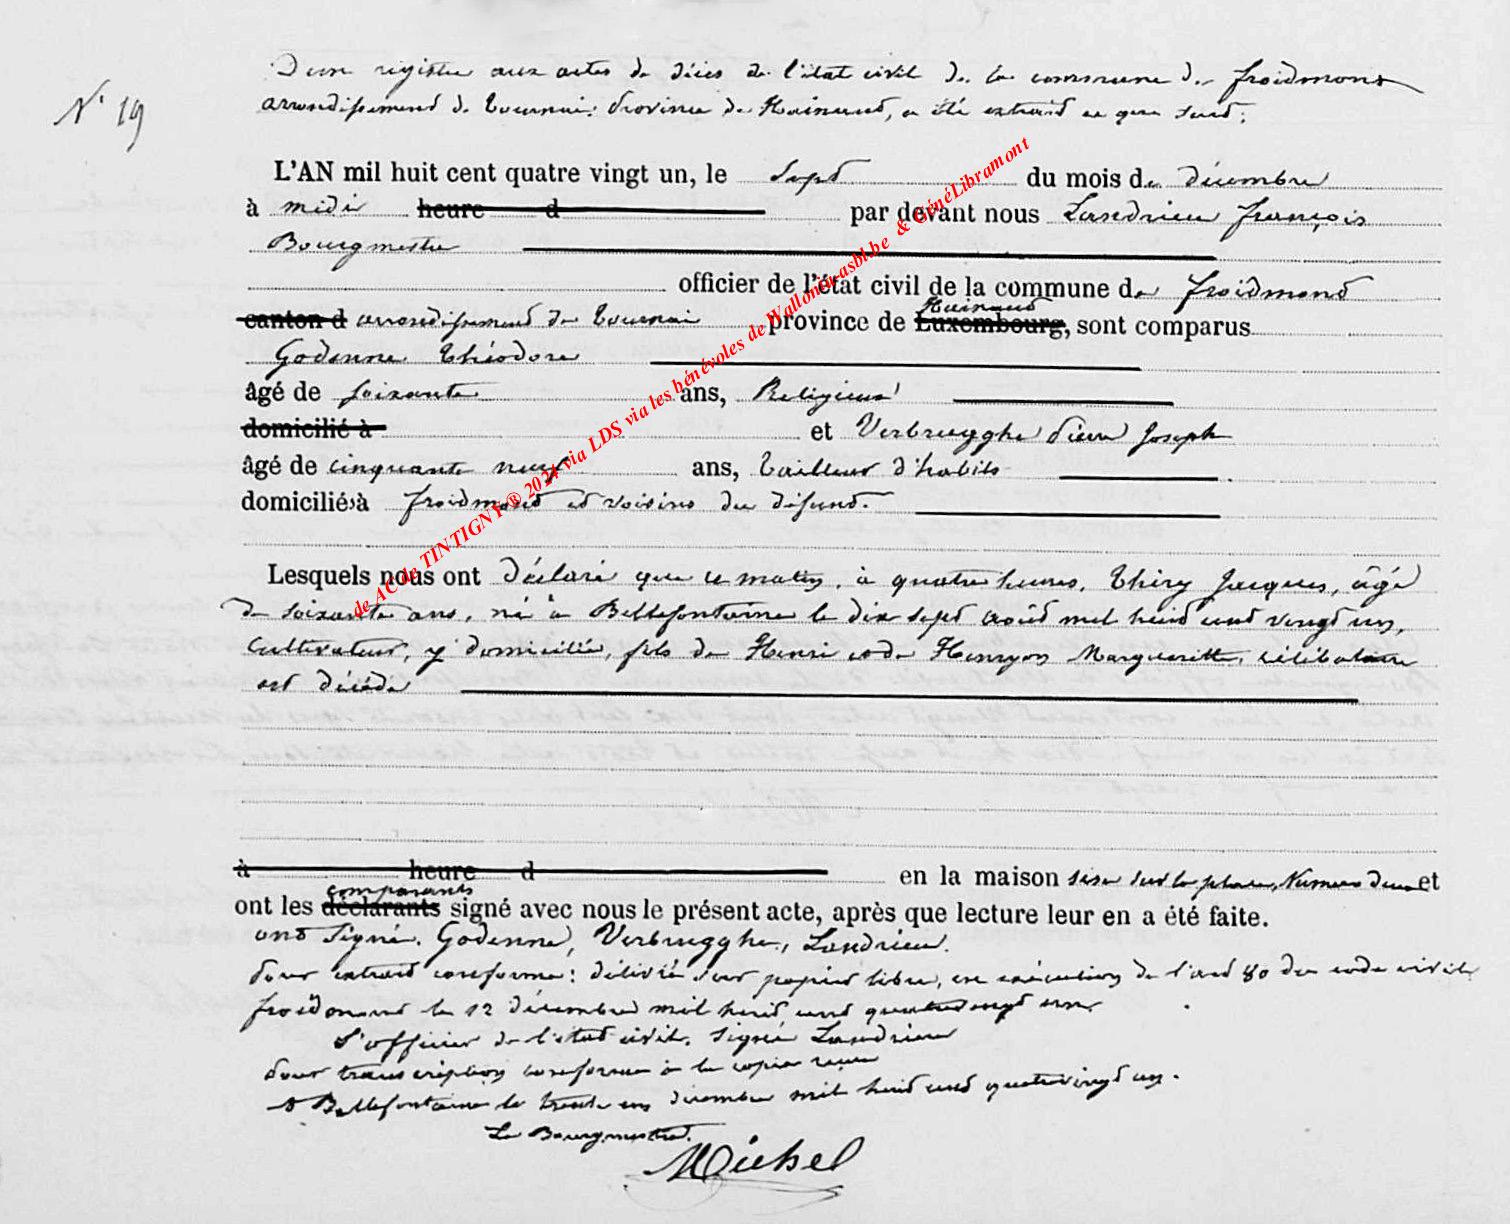 N° 19
D'un registre aux actes de décès de l'état civil de la commune de froidmont
arrondissement de Tournai, Province de Hainaut, a été extrait ce qui suit:
L'AN mil huit cent quatre vingt un, le sept du mois de décembre
à midi heure d par devant nous Landrieu françois
Bourgmestre
officier de l'état civil de la commune de froidmont
Hainaut
canton d arrondissement de Tournai province de Luxembourg, sont comparus
Godenne Théodore
âgé de soixante ans, Religieux
domicilié à et Verbrugghe Pierre Joseph
âgé de cinquante neuf ans, Tailleur d'habits
domiciliés à froidmont et voisins du défunt.
Lesquels nous ont déclaré que ce matin, à quatre heures, Thiry Jacques, âgé
de soixante ans, né à Bellefontaine le dix sept août mil huit cent vingt un,
Cultivateur, y domicilié, fils de Henri et de Henryon Margueritte, célibataire
est décédé
à heure d en la maison sise sur la place, Numéro deux et
comparants
ont les déclarants signé avec nous le présent acte, après que lecture leur en a été faite.
ont signé. Godenne, Verbrugghe, Landrieu.
Pour extrait conforme: délivré sur papier libre, en exécution de l'art 80 du code civil,
froidmont le 12 décembre mil huit cent quatrevingt un
L'officier de l'état civil. signé Landrieu
Pour transcription conforme à la copie reçue
à Bellefontaine le trente un décembre mil huit cent quatrevingt un.
Le Bourgmestre.
Michel
de AC de TINTIGNY® 2024 via LDS via les bénévoles de Wallonia-asbl.be & GénéLibramont